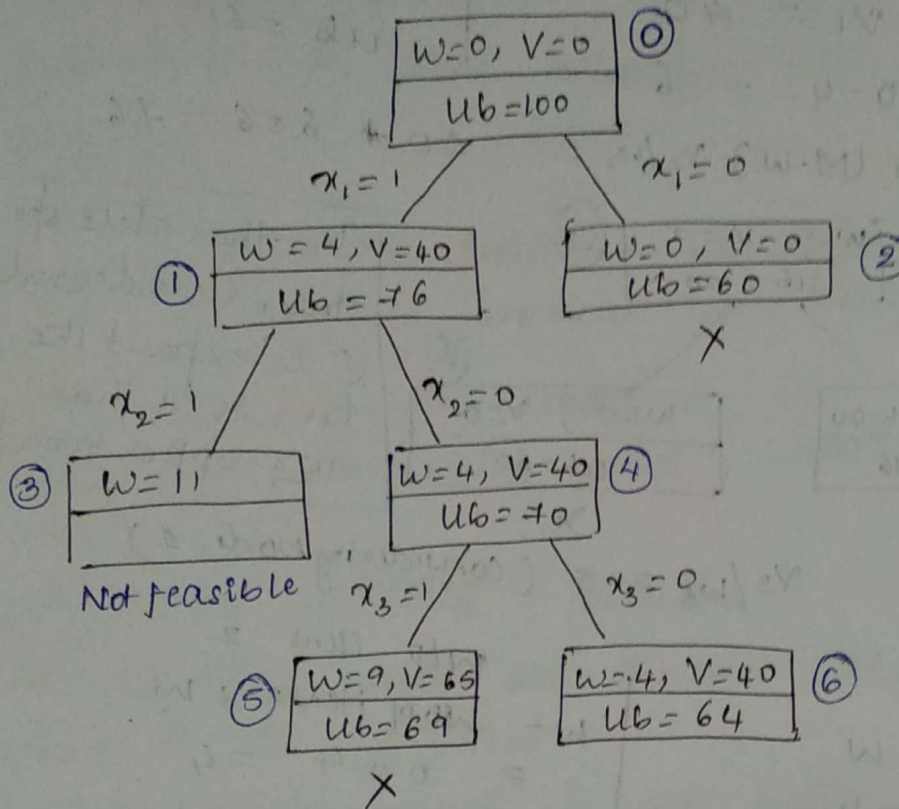 W=0, V=0
Ub=100
⓪
x₁=1
x₁=0
①
W=4, V=40
Ub=76
W=0, V=0
Ub=60
②
X
x₂=1
x₂=0
③
W=11
Not feasible
W=4, V=40
Ub=70
④
x₃=1
x₃=0
⑤
W=9, V=65
Ub=69
X
W=4, V=40
Ub=64
⑥